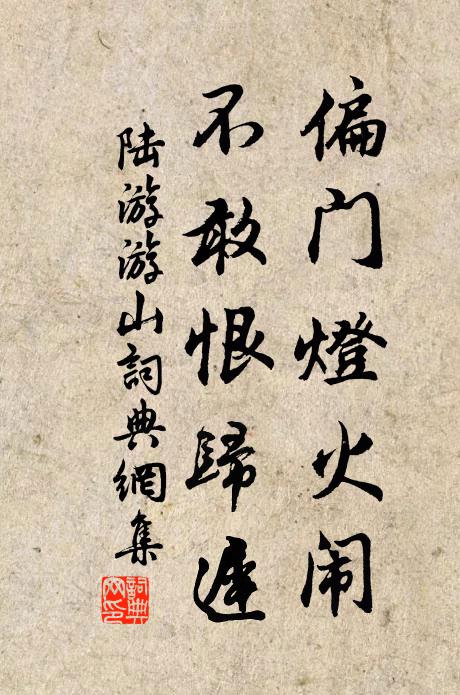 偏门燈火闹
不敢恨歸遲
陆游游山詞典網集
詞典网印